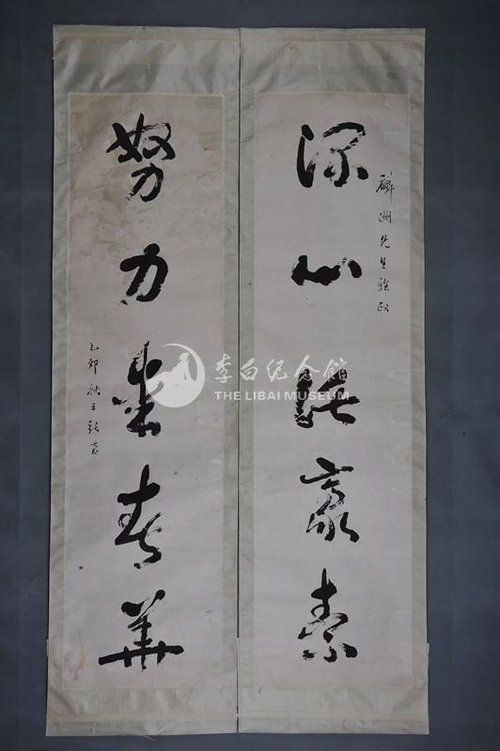 麟洲先生雅政
深心託豪素
努力愛春華
乙卯秋日
李白纪念馆
THE LIBAI MUSEUM